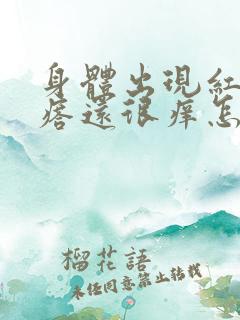 身體出現紅
痞還很痒怎
榴花語
未经同意禁止转载